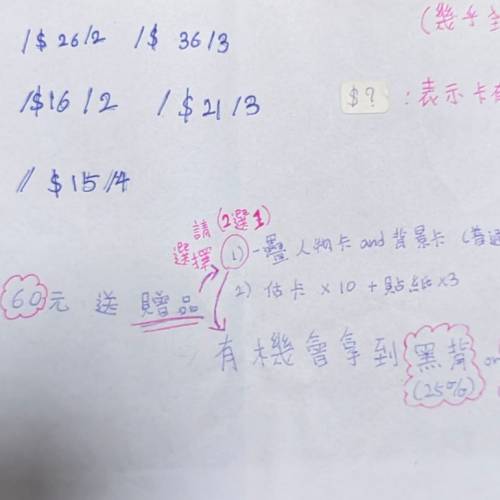 /$ 26/2 /$ 36/3
(幾乎
/$16/2 /$21/3
$? : 表示卡
// $15/4
請 (2選1)
選擇
1) 一疊 人物卡 and 背景卡 (普通
60元 送 贈品
2) 估卡 ×10 + 貼紙 ×3
有機會拿到 黑背
(25%)